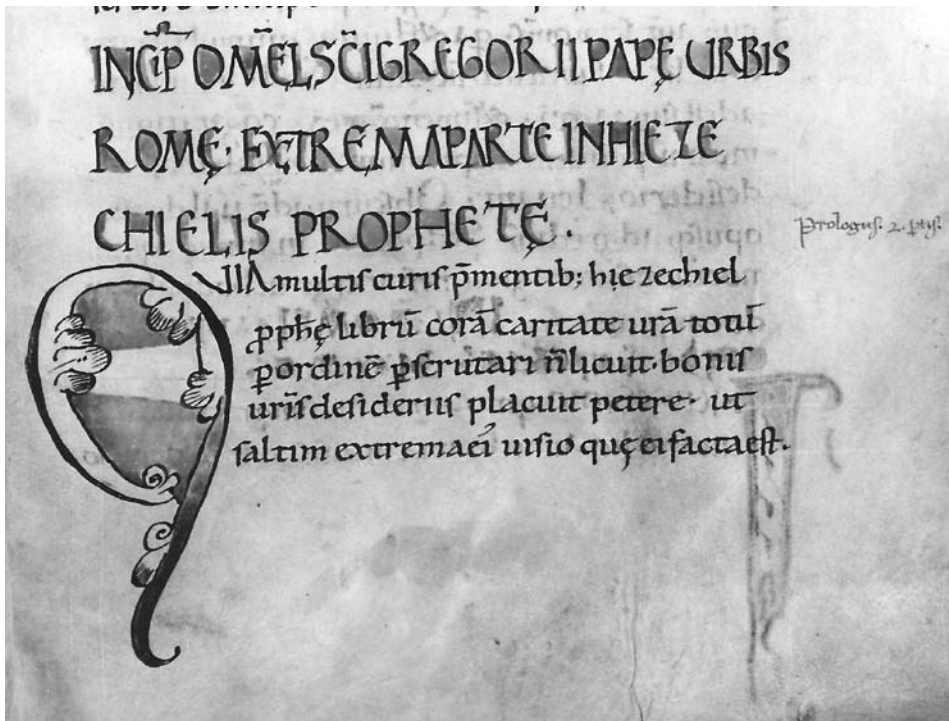 INCIP̄ OM̄EL SC̄I GREGORII PAPĘ URBIS
ROMĘ · EXTREMA PARTE IN HIEZE
CHIELIS PROPHETĘ .
QUIA multis curis p̄mentib; hiezechiel
ꝓph̄ę librū corā caritate ur̄a totū
ꝑ ordinē ꝑscrutari n̄ licuit · bonis
ur̄is desideriis placuit petere · ut
saltim extrema ei᾿ uisio quę ei facta est .
Prologus . 2 . ptis .